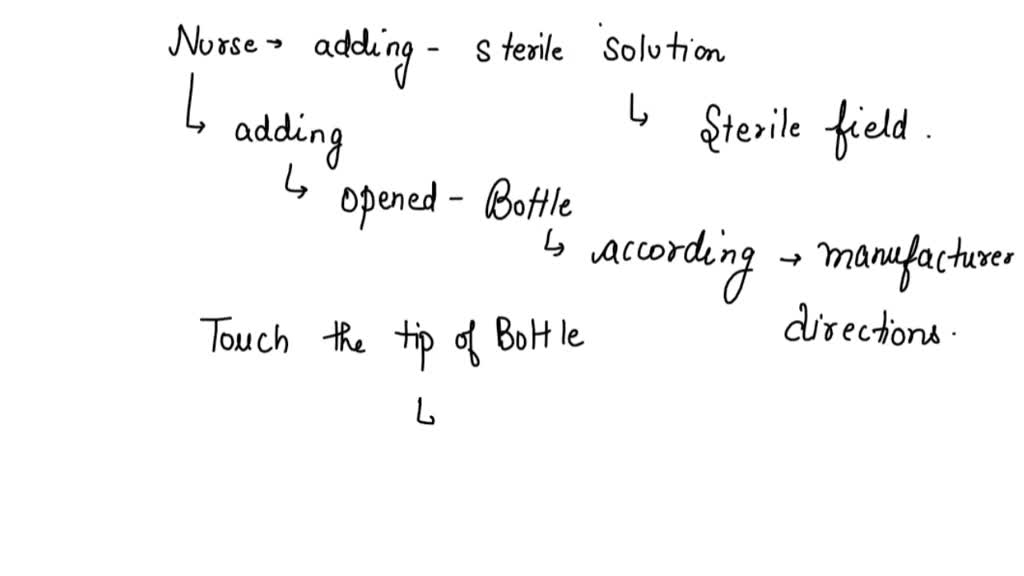 Nurse → adding - sterile solution
↳ adding ↳ Sterile field.
↳ opened - Bottle
↳ according → manufacturer
directions.
Touch the tip of Bottle
↳